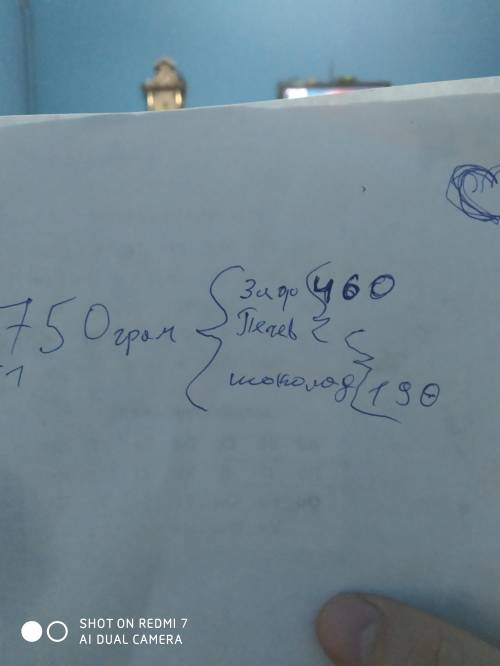 750 грам
Зефир 460
Печев
шоколад 190
SHOT ON REDMI 7
AI DUAL CAMERA